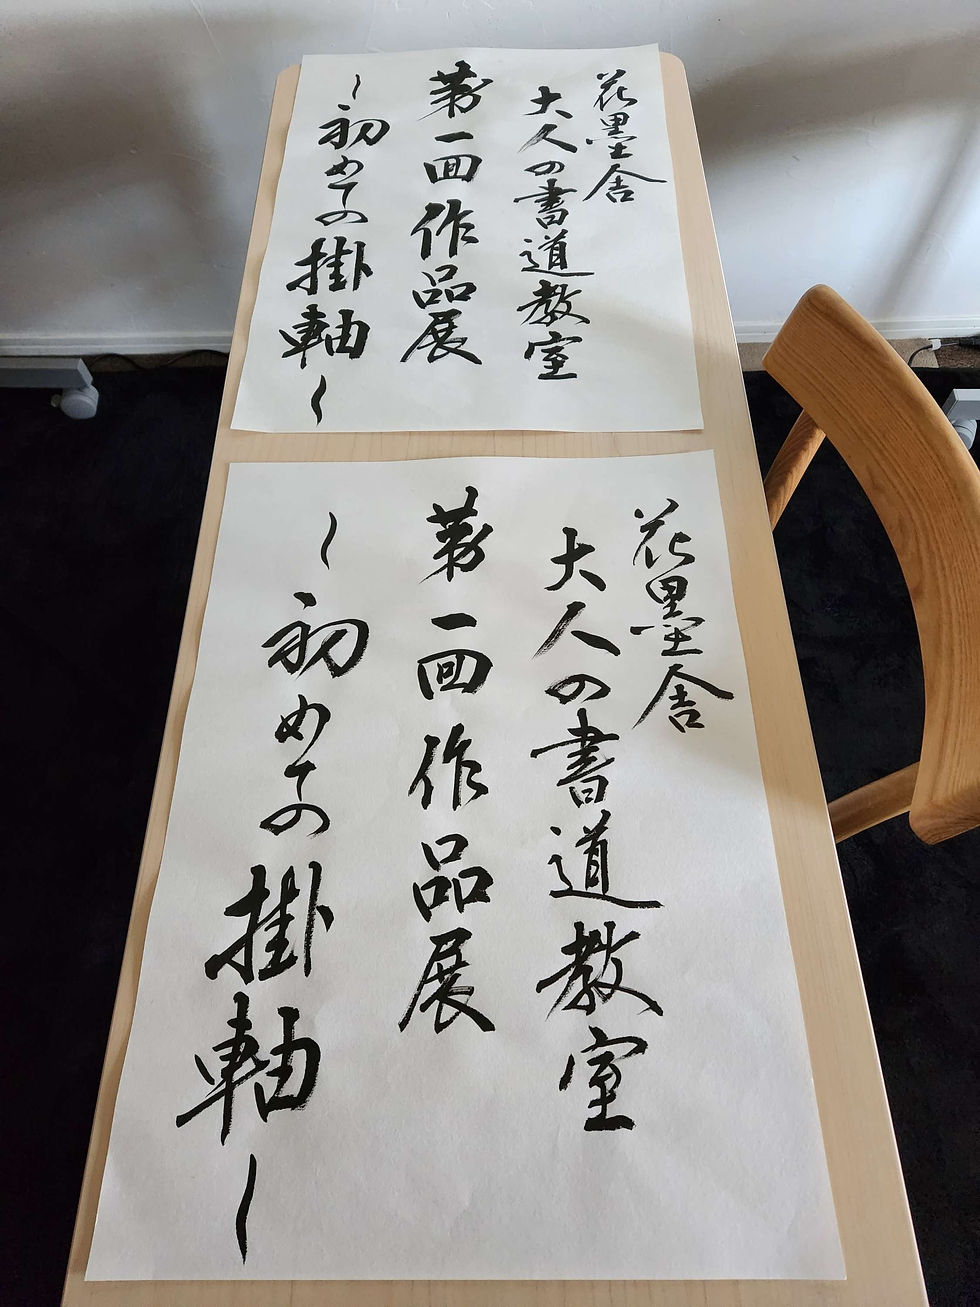 花墨舎
大人の書道教室
第一回作品展
~初めての掛軸~
花墨舎
大人の書道教室
第一回作品展
~初めての掛軸~